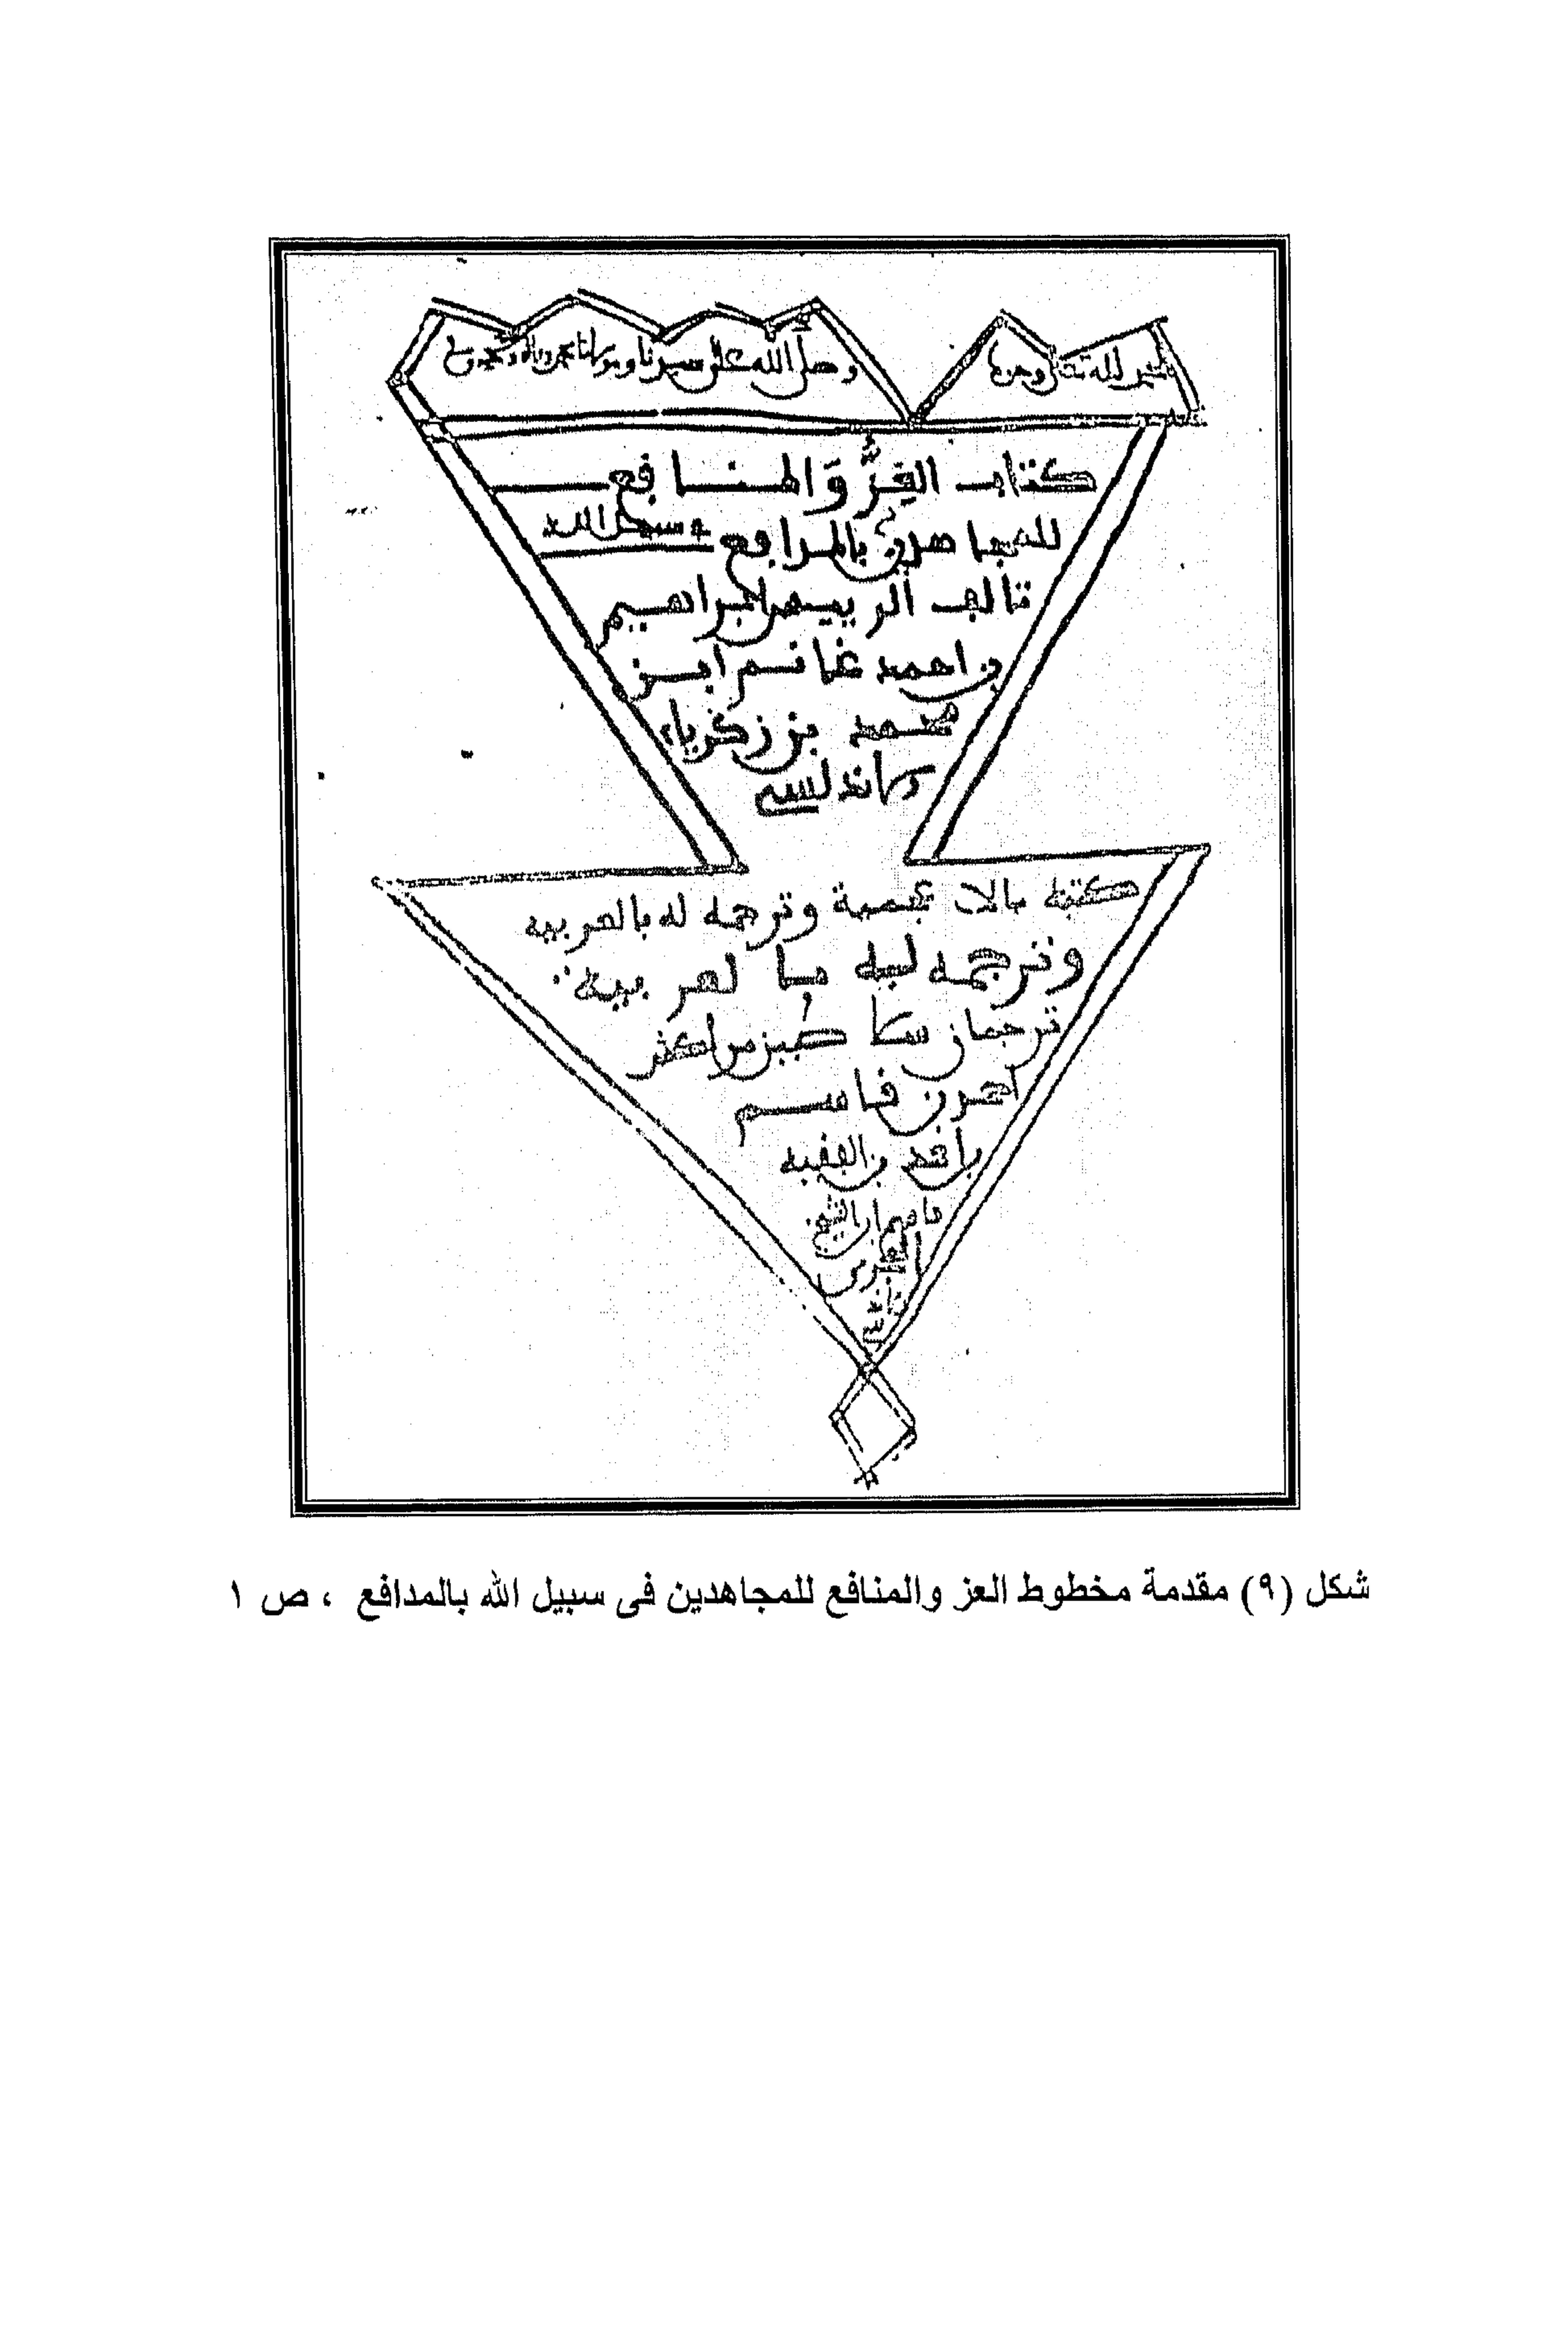 الحمد لله تعالى وحده
وصلى الله على سيدنا ومولانا محمد وآله وصحبه وسلم
كتاب العِزُّ وَالمنافع
للمجاهدين بالمدافع في سبيل الله
تاليف الرييس ابراهيم
بن احمد غانم ابن
محمد بن زكرياء
الاندلسي
كتبه بالاعجمية وترجمه له بالعربيه
وترجمه ليه بالعربية
ترجمان سلاطين مراكش
احمد بن قاسم
بن احمد بن الفقيه
قاسم ابن الشيخ
الحجري
الاندلسي
شكل (٩) مقدمة مخطوط العز والمنافع للمجاهدين فى سبيل الله بالمدافع ، ص ١